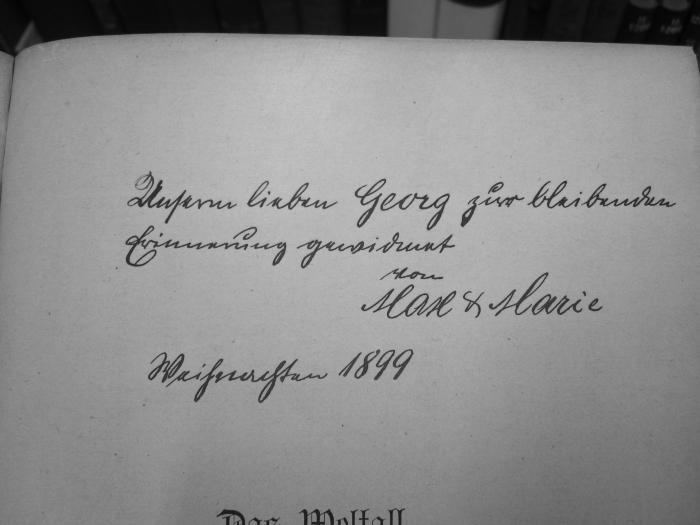 Unserm lieben Georg zur bleibenden
Erinnerung gewidmet
von
Max & Marie
Weihnachten 1899
Das Weltall